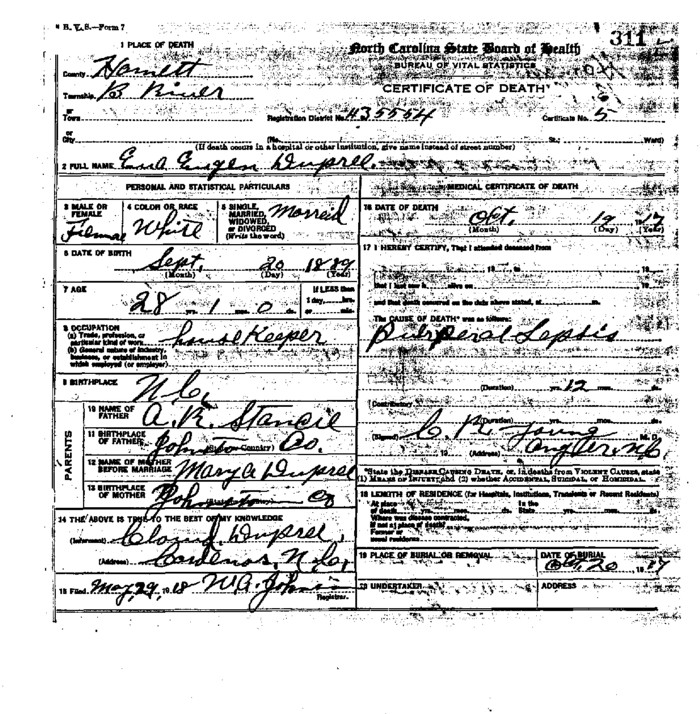 B. V. S.—Form 7
311
1 PLACE OF DEATH
North Carolina State Board of Health
BUREAU OF VITAL STATISTICS
CERTIFICATE OF DEATH
County Harnett
Township B River
or
Town
Registration District No. 435554
Certificate No. 5
or
City (No. St.; Ward)
(If death occurs in a hospital or other institution, give name instead of street number)
2 FULL NAME Ena Eugen Dupree.
PERSONAL AND STATISTICAL PARTICULARS
MEDICAL CERTIFICATE OF DEATH
3 MALE OR FEMALE
4 COLOR OR RACE White
5 SINGLE, MARRIED, WIDOWED, or DIVORCED (Write the word) Marreid
16 DATE OF DEATH Oct. 19 1917
(Month) (Day) (Year)
6 DATE OF BIRTH Sept. 20 1889
(Month) (Day) (Year)
17 I HEREBY CERTIFY, That I attended deceased from
that I last saw h alive on
and that death occurred on the date above stated, at m.
7 AGE 28 yrs. 1 mos. 0 ds.
If LESS than 1 day, hrs. or min.
The CAUSE OF DEATH* was as follows:
Puerperal Sepsis
8 OCCUPATION
(a) Trade, profession, or particular kind of work house Keeper
(b) General nature of industry, business, or establishment in which employed (or employer)
(Duration) yrs. 12 mos. ds.
Contributory
9 BIRTHPLACE N.C.
(Duration) yrs. mos. ds.
PARENTS
10 NAME OF FATHER A. R. Stancil
(Signed) C. R. Young M. D.
(Address) Angier, N.C.
11 BIRTHPLACE OF FATHER Johnston Co.
(Country)
12 NAME OF MOTHER BEFORE MARRIAGE Mary A Dupree
*State the DISEASE CAUSING DEATH, or, in deaths from VIOLENT CAUSES, state (1) MEANS OF INJURY; and (2) whether ACCIDENTAL, SUICIDAL, or HOMICIDAL.
13 BIRTHPLACE OF MOTHER Johnston Co
18 LENGTH OF RESIDENCE (for Hospitals, Institutions, Transients or Recent Residents)
At place of death yrs. mos. ds. In the State yrs. mos. ds.
Where was disease contracted, if not at place of death?
Former or usual residence
14 THE ABOVE IS TRUE TO THE BEST OF MY KNOWLEDGE
(Informant) Dupree,
(Address) Cardenas, N.C.
19 PLACE OF BURIAL OR REMOVAL
DATE OF BURIAL Oct. 20 1917
15 Filed May, 29, 1918 W. A. Johns
Registrar.
20 UNDERTAKER
ADDRESS